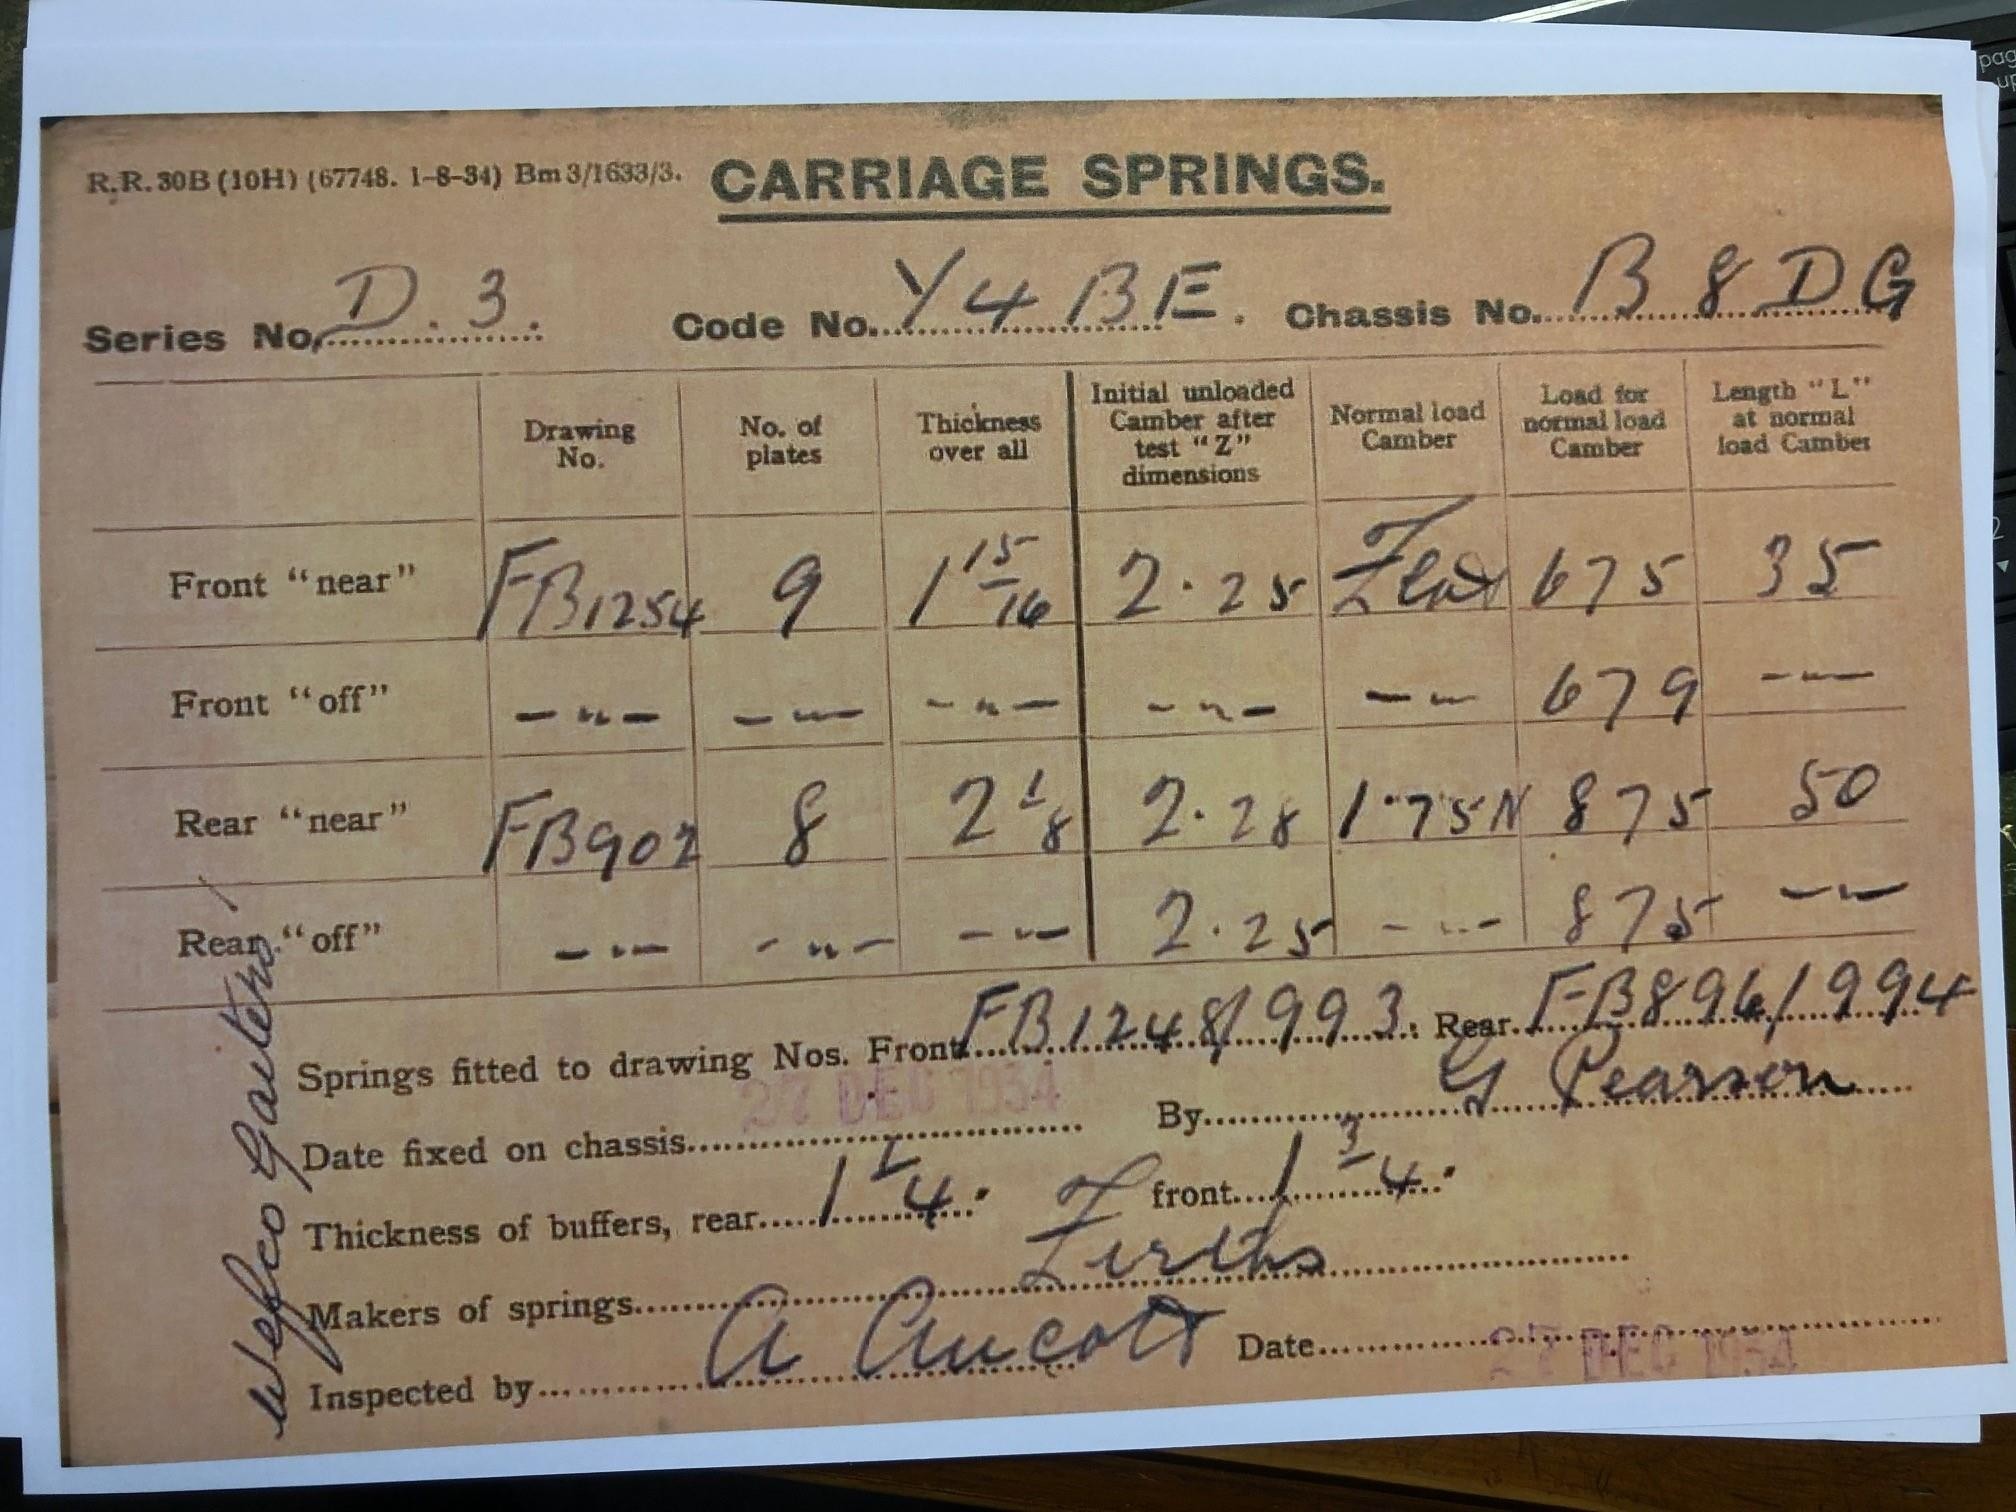 R.R. 30B (10H) (67748. 1-8-34) Bm 3/1633/3. CARRIAGE SPRINGS.
Series No. D. 3. Code No. Y4BE. Chassis No. B8DG
Drawing No. No. of plates Thickness over all Initial unloaded Camber after test "Z" dimensions Normal load Camber Load for normal load Camber Length "L" at normal load Camber
Front "near" FB1254 9 1 15/16 2.25 Flat 675 35
Front "off" — " — — " — — " — — " — — " — 679 — " —
Rear "near" FB902 8 2 1/8 2.28 1.75N 875 50
Rear "off" — " — — " — — " — 2.25 — " — 875 — " —
Springs fitted to drawing Nos. Front FB1248/993: Rear FB896/994
Date fixed on chassis 27 DEC 1934 By G Pearson
Thickness of buffers, rear 1 1/4. front 1 3/4.
Makers of springs Firths
Inspected by A Aucott Date 27 DEC 1934
Wefco Gaiters
page
up
2